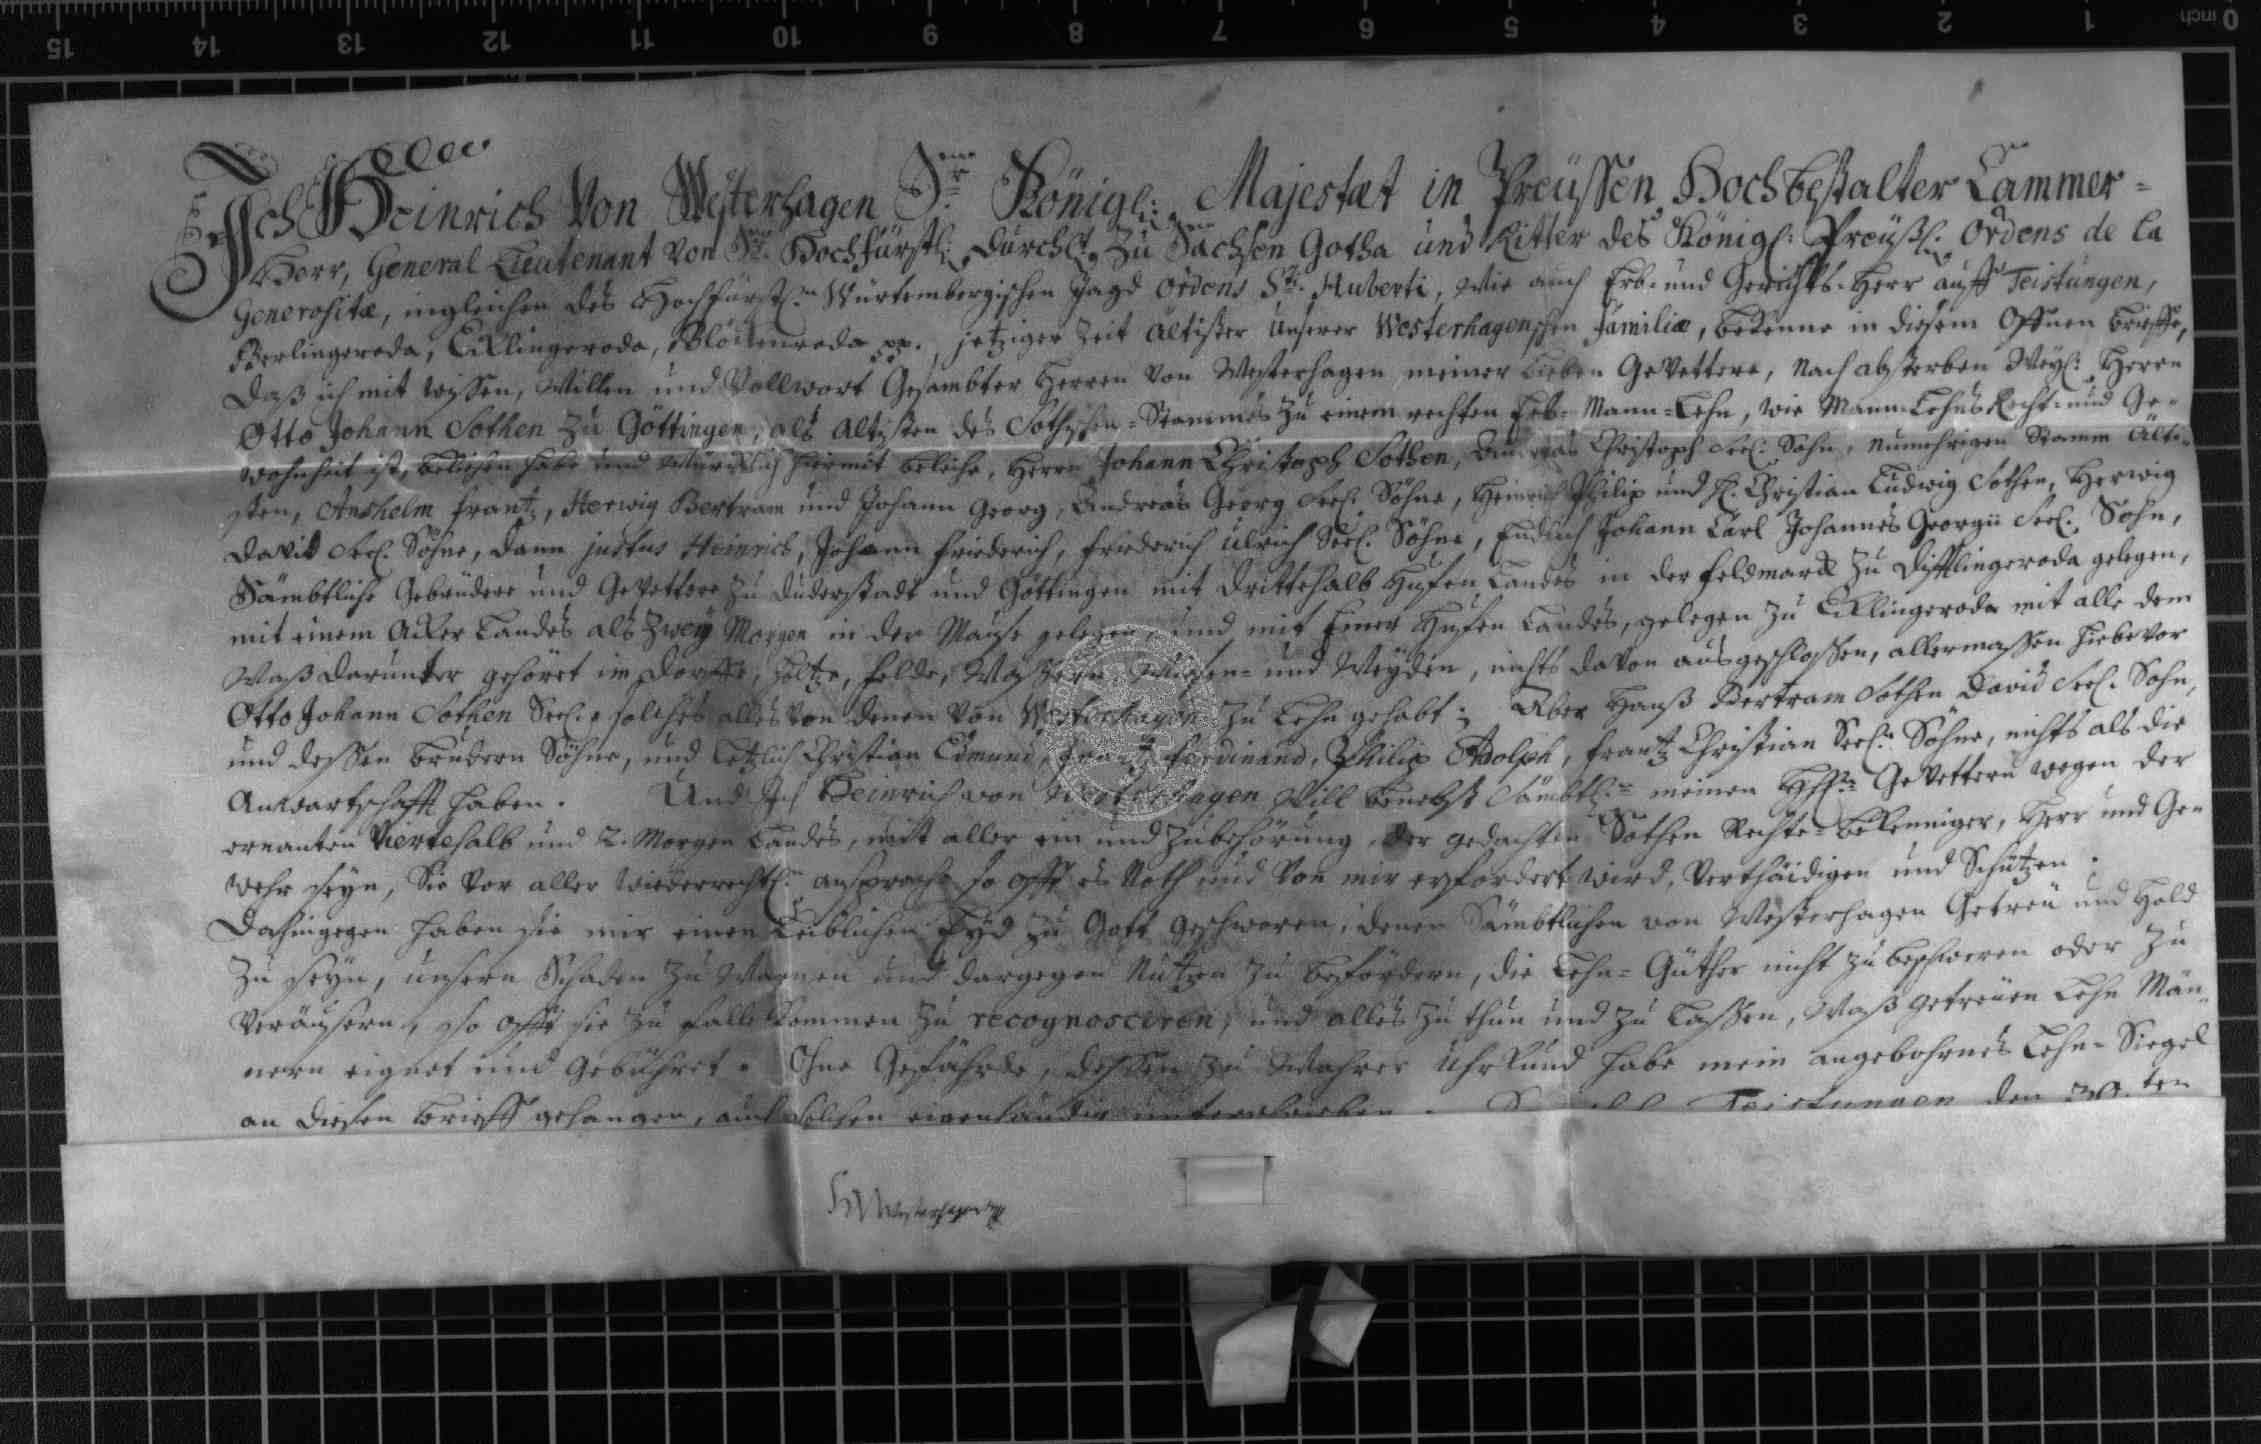 Ich Heinrich Von Westerhagen Sr. Königl: Majestæt in Preüssen Hochbestalter Cammer-
Herr, General Lieutenant von Sr. Hochfürstl: Durchlt. zu Sachsen Gotha und Ritter des Königl: Preüßl. Ordens de la
Generositæ, ingleichen des Hochfürstl.n Würtembergischen Jagd Ordens Sti. Huberti, wie auch Erb- und Gerichts-Herr auff Teistungen,
Berlingeroda, Ecklingeroda, Bleckenroda pp. jetziger Zeit Altister Unserer Westerhagenschen Familiæ, bekenne in diesem Offnen brieffe,
Daß ich mit wissen, Willen und Vollwort Gesambter Herren von Westerhagen meiner Lieben GeVettere, Nach absterben Weyl: Herrn
Otto Johann Sothen zu Göttingen, als Altisten des Sothschen-Stammes zu einem rechten Erb-Mann-Lehn, wie Mann-Lehns Recht- und Ge-
wohnheit ist, beliehen habe und Würcklich hiermit beleihe, Herrn Johann Christoph Sothen, Andreas Christoph Seel: Sohn, nunmehrigen Stamm Alti-
sten, Anshelm Frantz, Herwig Bertram und Johann Georg, Andreas Georg Seel. Söhne, Heinrich Philip und H. Christian Ludwig Sothen, Herwig
David Seel. Söhne, dann justus Heinrich, Johann Friederich, Friederich Ulrich Seel. Söhne, Endlich Johann Carl Johannes Georgii Seel. Sohn,
Sämbtliche Gebrüdere und GeVettere zu Duderstadt und Göttingen mit drittehalb Hufen Landes in der Feldmarck zu Disstlingeroda gelegen,
mit einem Acker Landes als Zwey Morgen in der Mause gelegen, und mit Einer Hufen Landes, gelegen zu Ecklingeroda mit alle dem
Waß darunter gehöret im Dorffe, Holtze, Felde, Wassern, Wiesen- und Weyden, nichts davon ausgeschlossen, allermassen hiebevor
Otto Johann Sothen Seel. solches alles von denen von Westerhagen zu Lehn gehabt; Aber Hanß Bertram Sothen David Seel. Sohn,
und dessen brüdern Söhne, und Letzlich Christian Edmund, Frantz Ferdinand, Philip Adolph, Frantz Christian Seel.n Söhne, nichts als die
Anwartschafft haben. Und Ich Heinrich von Westerhagen Will benebst Sämbtl.n meinen HH.n GeVettern wegen der
ernanten Viertehalb und 2. Morgen Landes, mitt aller ein und Zubehörung, der gedachten Sothen Rechte-bekenniger, Herr und Ge-
wehr seyn, Sie vor aller Wiederrechtl.n ansprache so offt es Noth und von mir erfordert wird, Verthäidigen und Schützen.
Dahingegen haben sie mir einen Leiblichen Eyd zu Gott geschworen, denen Sämbtlichen von Westerhagen Getreü und Hold
zu seyn, unsern Schaden zu Warnen und dargegen Nutzen zu befördern, die Lehn-Güther nicht zu beschweren oder zu
Veräusern, so offt sie zu falle Kommen zu recognosciren, und alles zu thun und zu Lassen, Waß Getreüen Lehn Män-
nern eignet und Gebühret. Ohne Gefährde, dessen zu Wahrer Uhrkund habe mein angebohrnes Lehn-Siegel
an diesen brieff gehangen, auch solchen eigenhändig unterschrieben. Teistungen den 30.ten
HvWesterhagen
15 14 13 12 11 10 9 8 7 6 5 4 3 2 1 0 inch